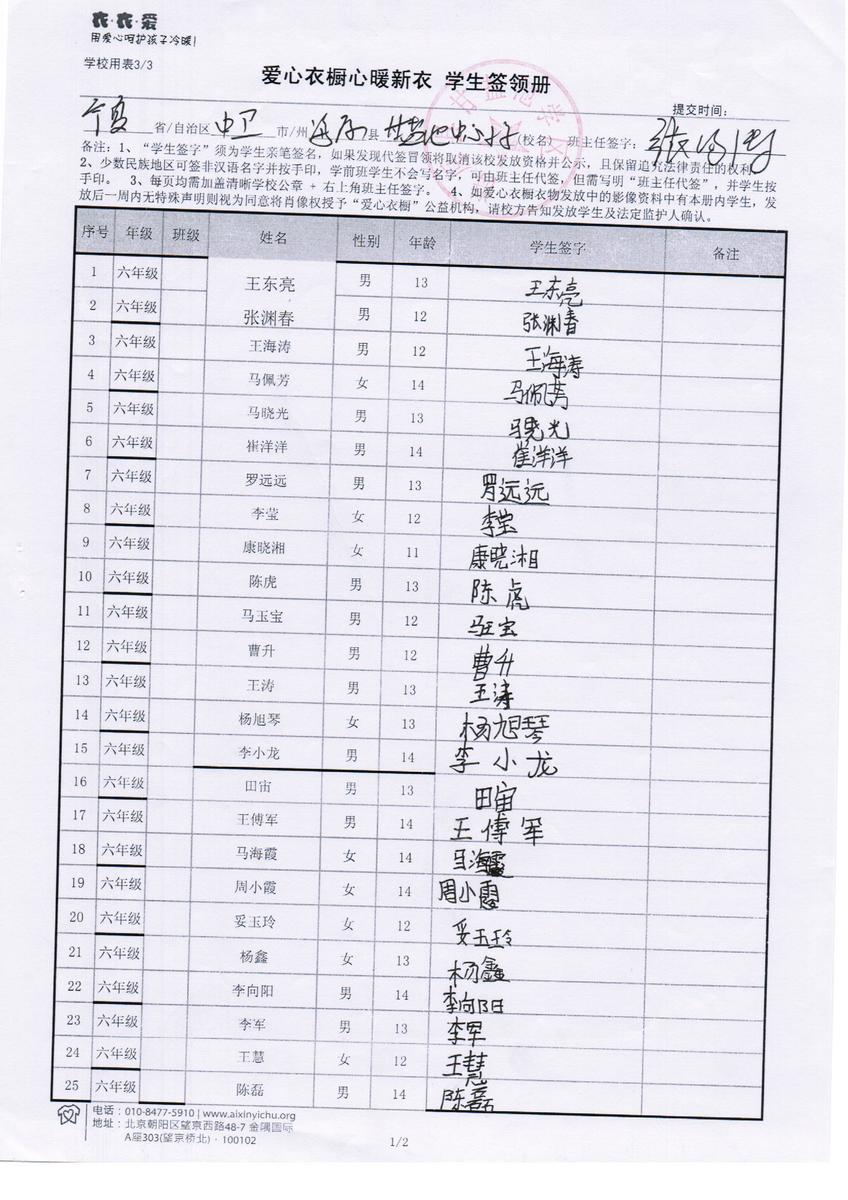 衣·衣·爱
用爱心呵护孩子冷暖!
学校用表3/3
爱心衣橱心暖新衣 学生签领册
提交时间:
宁夏 省/自治区 中卫 市/州 海原 县 (校名) 班主任签字:
备注:1、“学生签字”须为学生亲笔签名,如果发现代签冒领将取消该校发放资格并公示,且保留追究法律责任的权利。
2、少数民族地区可签非汉语名字并按手印,学前班学生不会写名字,可由班主任代签,但需写明“班主任代签”,并学生按
手印。 3、每页均需加盖清晰学校公章 + 右上角班主任签字。 4、如爱心衣橱衣物发放中的影像资料中有本册内学生,发
放后一周内无特殊声明则视为同意将肖像权授予“爱心衣橱”公益机构,请校方告知发放学生及法定监护人确认。
序号 年级 班级 姓名 性别 年龄 学生签字 备注
1 六年级 王东亮 男 13 王东亮
2 六年级 张渊春 男 12 张渊春
3 六年级 王海涛 男 12 王海涛
4 六年级 马佩芳 女 14 马佩芳
5 六年级 马晓光 男 13 马晓光
6 六年级 崔洋洋 男 14 崔洋洋
7 六年级 罗远远 男 13 罗远远
8 六年级 李莹 女 12 李莹
9 六年级 康晓湘 女 11 康晓湘
10 六年级 陈虎 男 13 陈虎
11 六年级 马玉宝 男 12 马玉宝
12 六年级 曹升 男 12 曹升
13 六年级 王涛 男 13 王涛
14 六年级 杨旭琴 女 13 杨旭琴
15 六年级 李小龙 男 14 李小龙
16 六年级 田宙 男 13 田宙
17 六年级 王傅军 男 14 王傅军
18 六年级 马海霞 女 14 马海霞
19 六年级 周小霞 女 14 周小霞
20 六年级 妥玉玲 女 12 妥玉玲
21 六年级 杨鑫 女 13 杨鑫
22 六年级 李向阳 男 14 李向阳
23 六年级 李军 男 13 李军
24 六年级 王慧 女 12 王慧
25 六年级 陈磊 男 14 陈磊
电话:010-8477-5910 | www.aixinyichu.org
地址:北京朝阳区望京西路48-7 金隅国际
A座303(望京桥北)·100102
1/2